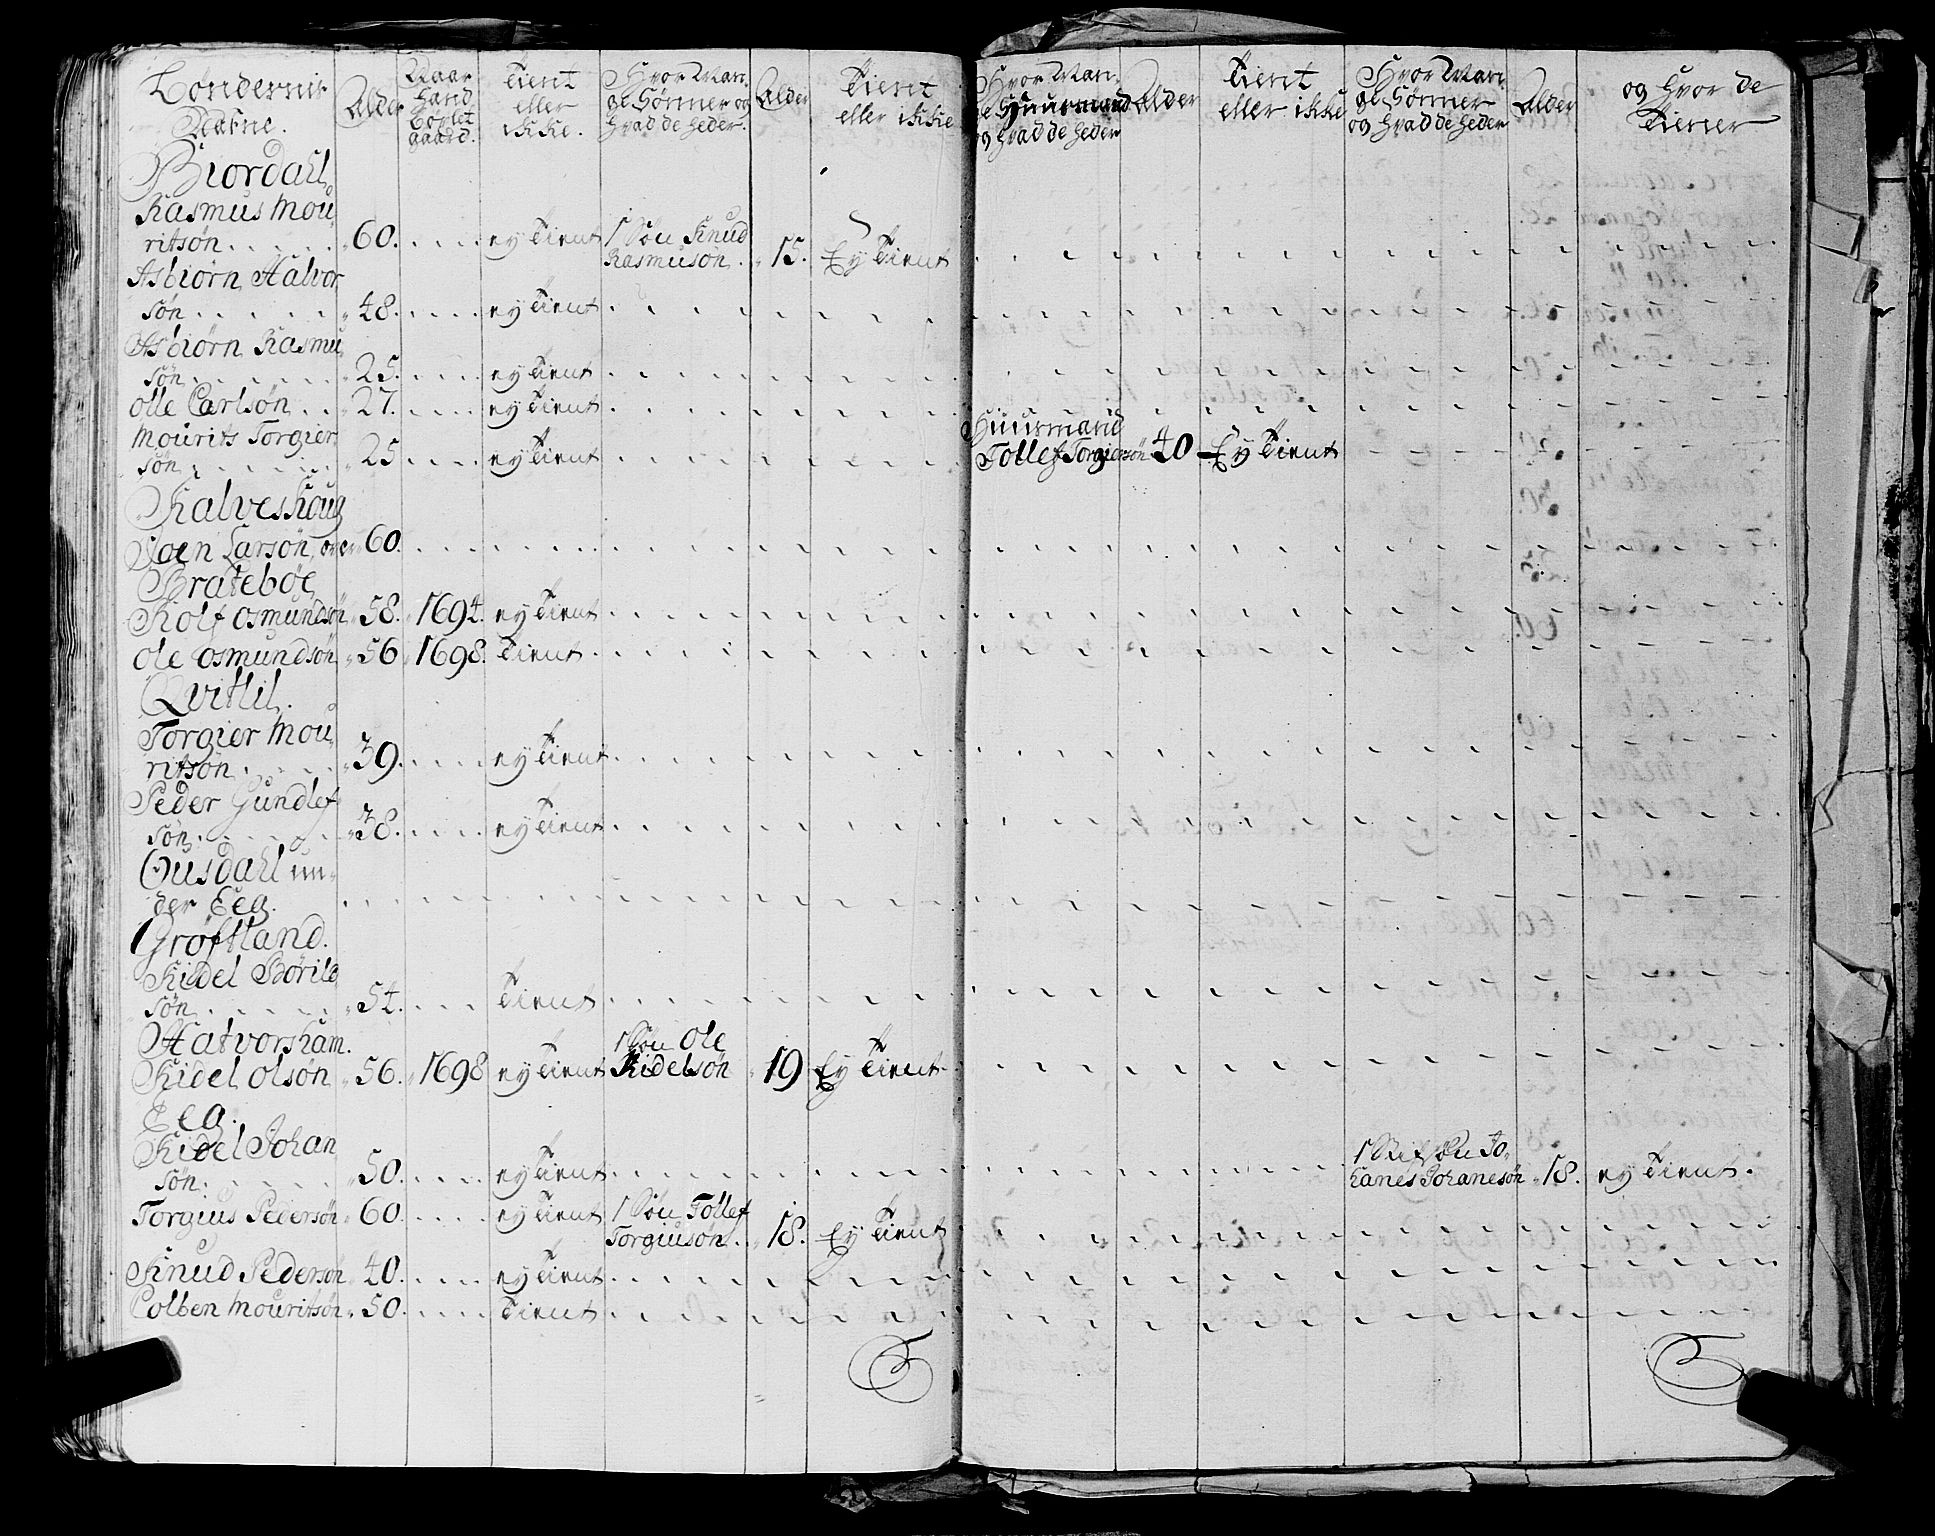 Böndernis Nafne. Alder Naar hand boxlet gaard. Tient eller ikke. Hvor Mange Sönner og hvad de heder. Alder Tient eller ikke Hvor Mange Huusmænd og hvad de heder Alder Tient eller ikke Hvor Mange Sönner og hvad de heder Alder og hvor de Tiener
Biordahl
Rasmus Mou
ritsøn 60. ey Tient 1 Søn Knud
Rasmusøn. 15. Ey Tient
Asbiørn Halvor
søn 48. ey Tient
Asbiørn Rasmu
søn 25. ey Tient
Olle Carlsøn 27. ey Tient
Mourits Torgier
søn 25 ey Tient Huusmand
Tollef Torgiersøn 40 Ey Tient
Kalveshoug
Joen Larsøn, over 60.
Bratebøe
Rolf Osmundsøn 58. 1694. ey Tient
Ole Osmundsøn 56 1698. Tient
Qvitlil.
Torgier Mou
ritsøn 39. ey Tient
Peder Gundlef
søn 38. ey Tient
Ousdahl un-
der Eeg.
Grøftland.
Kidel Børils
søn 54. Tient
Halvorsham.
Kidel Olsøn 56. 1698 ey Tient 1 Søn Ole
Kidelsøn 19 Ey Tient
Eeg.
Kidel Johan
søn. 50. ey Tient 1 Stifsøn Jo
hanes Johanesøn 18. ey Tient.
Torgius Pedersøn 60 ey Tient 1 Søn Tollef
Torgiusøn. 18. Ey Tient
Knud Pedersøn 40. ey Tient
Colben Mouritsøn 50. Tient